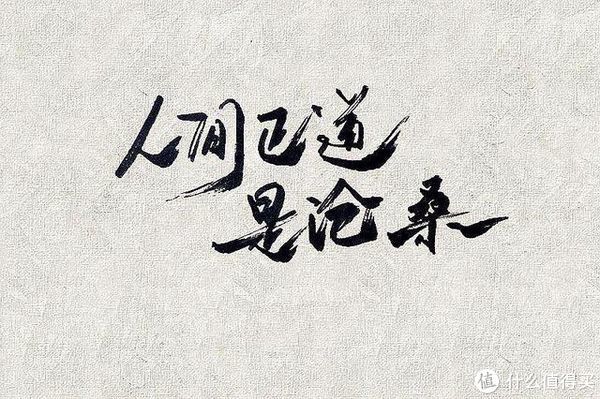 人间正道
是沧桑
值 什么值得买